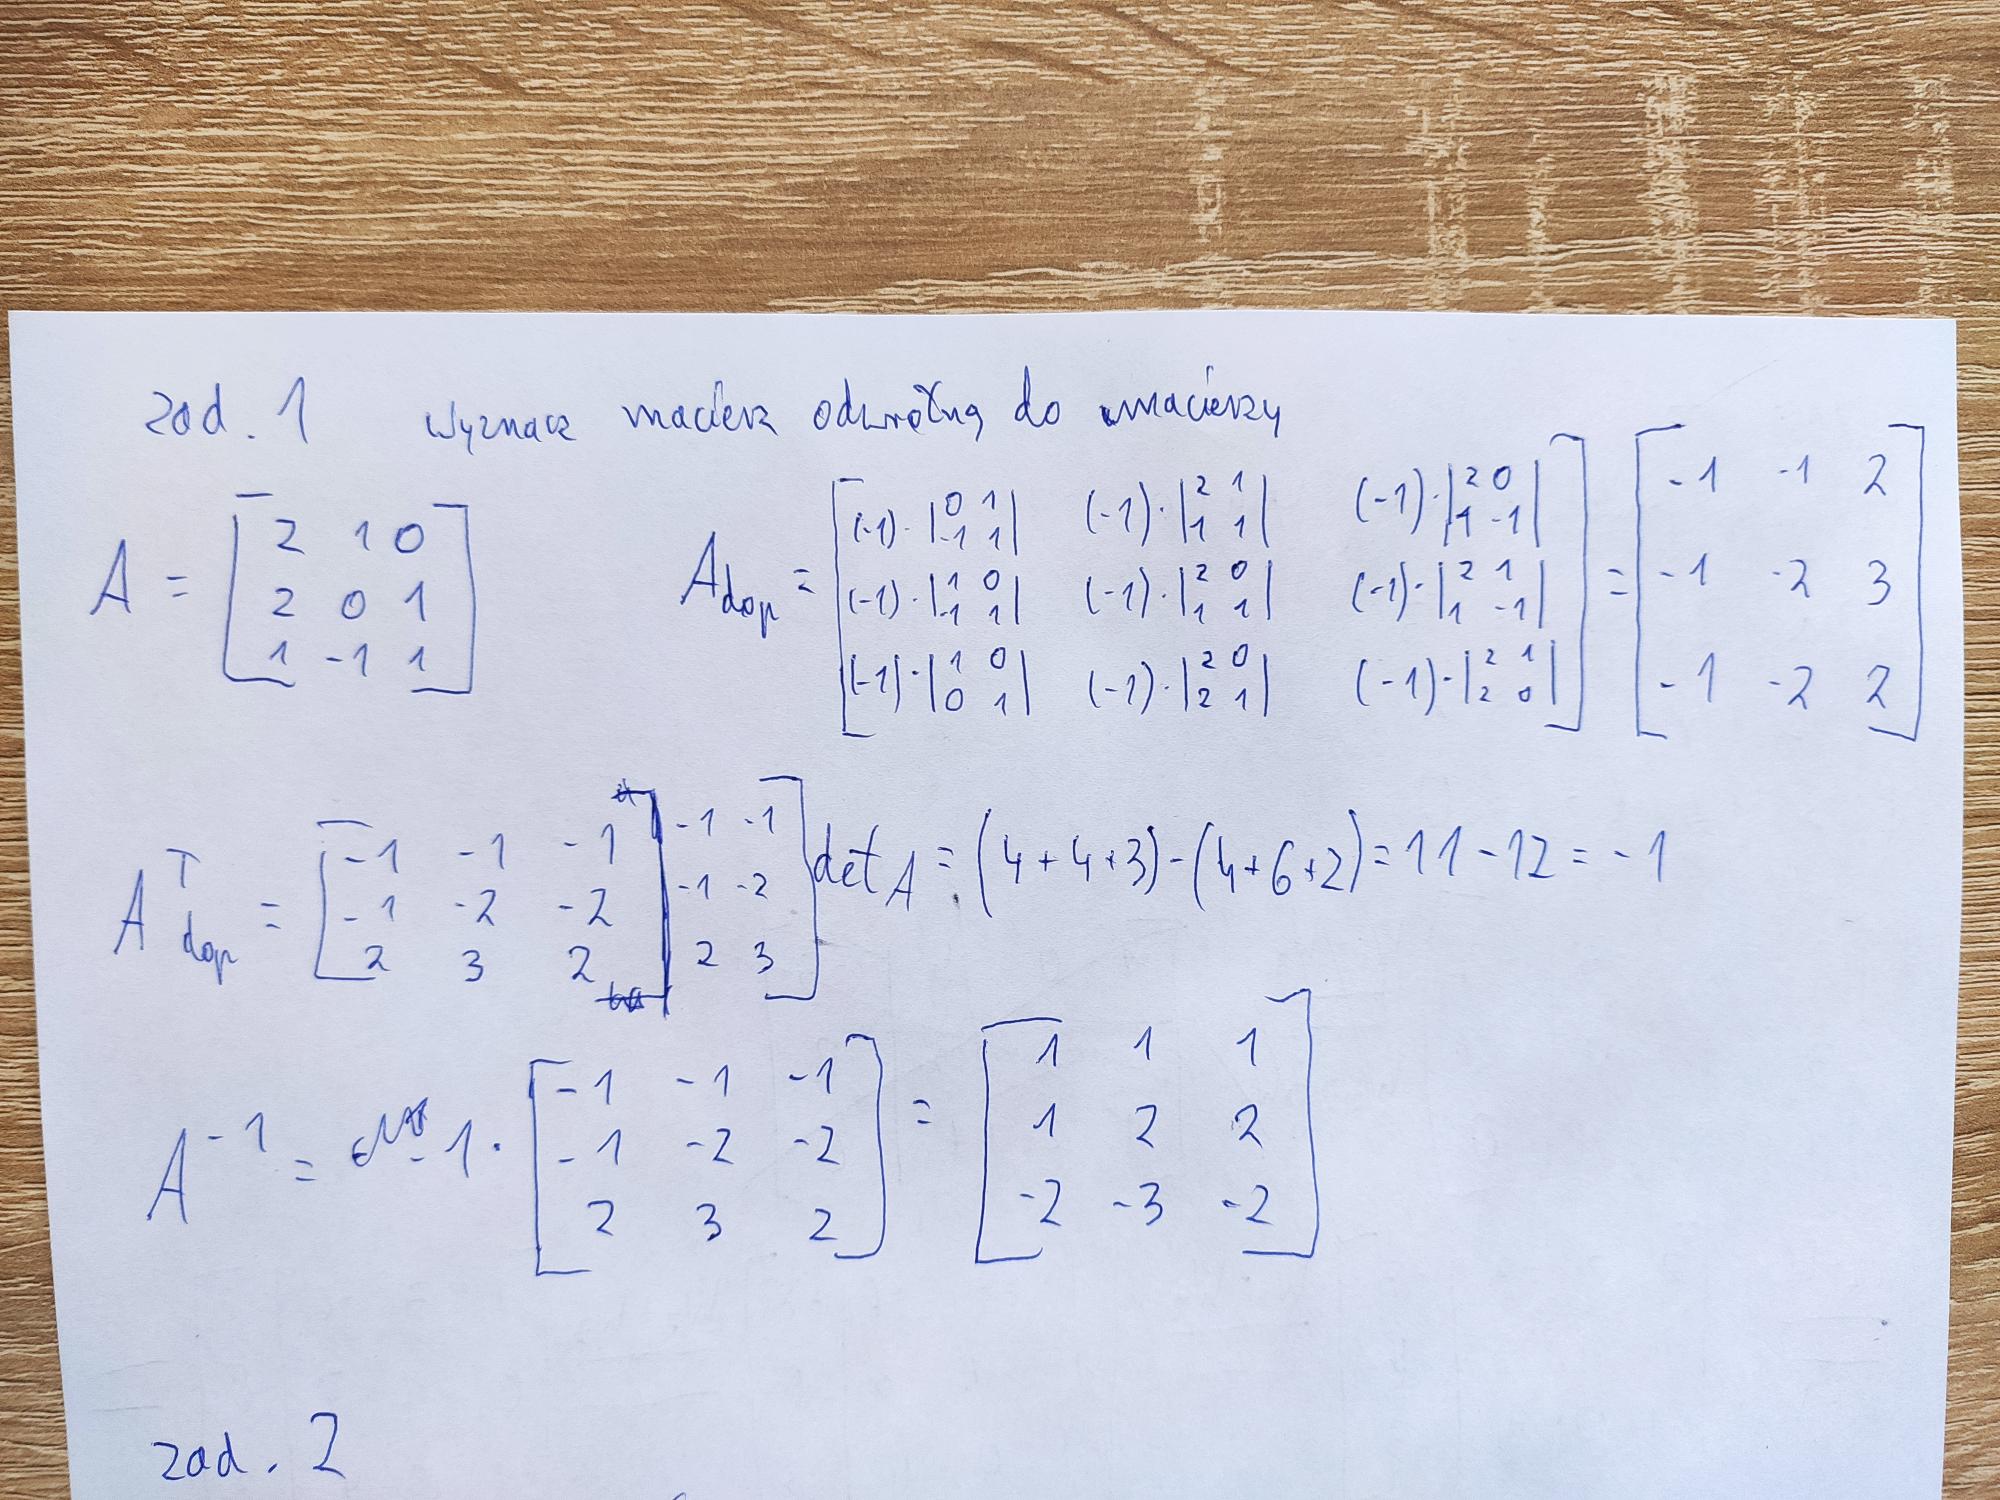 zad. 1 Wyznacz macierz odwrotną do macierzy
A = [ 2 1 0
2 0 1
1 -1 1 ]
A dop = [ (-1)·|0 1 -1 1| (-1)·|2 1 1 1| (-1)·|2 0 1 -1|
(-1)·|1 0 -1 1| (-1)·|2 0 1 1| (-1)·|2 1 1 -1|
(-1)·|1 0 0 1| (-1)·|2 0 2 1| (-1)·|2 1 2 0| ] = [ -1 -1 2
-1 -2 3
-1 -2 2 ]
A T dop = [ -1 -1 -1 | -1 -1
-1 -2 -2 | -1 -2
2 3 2 | 2 3 ]
det A = (4+4+3)-(4+6+2) = 11-12 = -1
A -1 = -1 · [ -1 -1 -1
-1 -2 -2
2 3 2 ] = [ 1 1 1
1 2 2
-2 -3 -2 ]
zad. 2